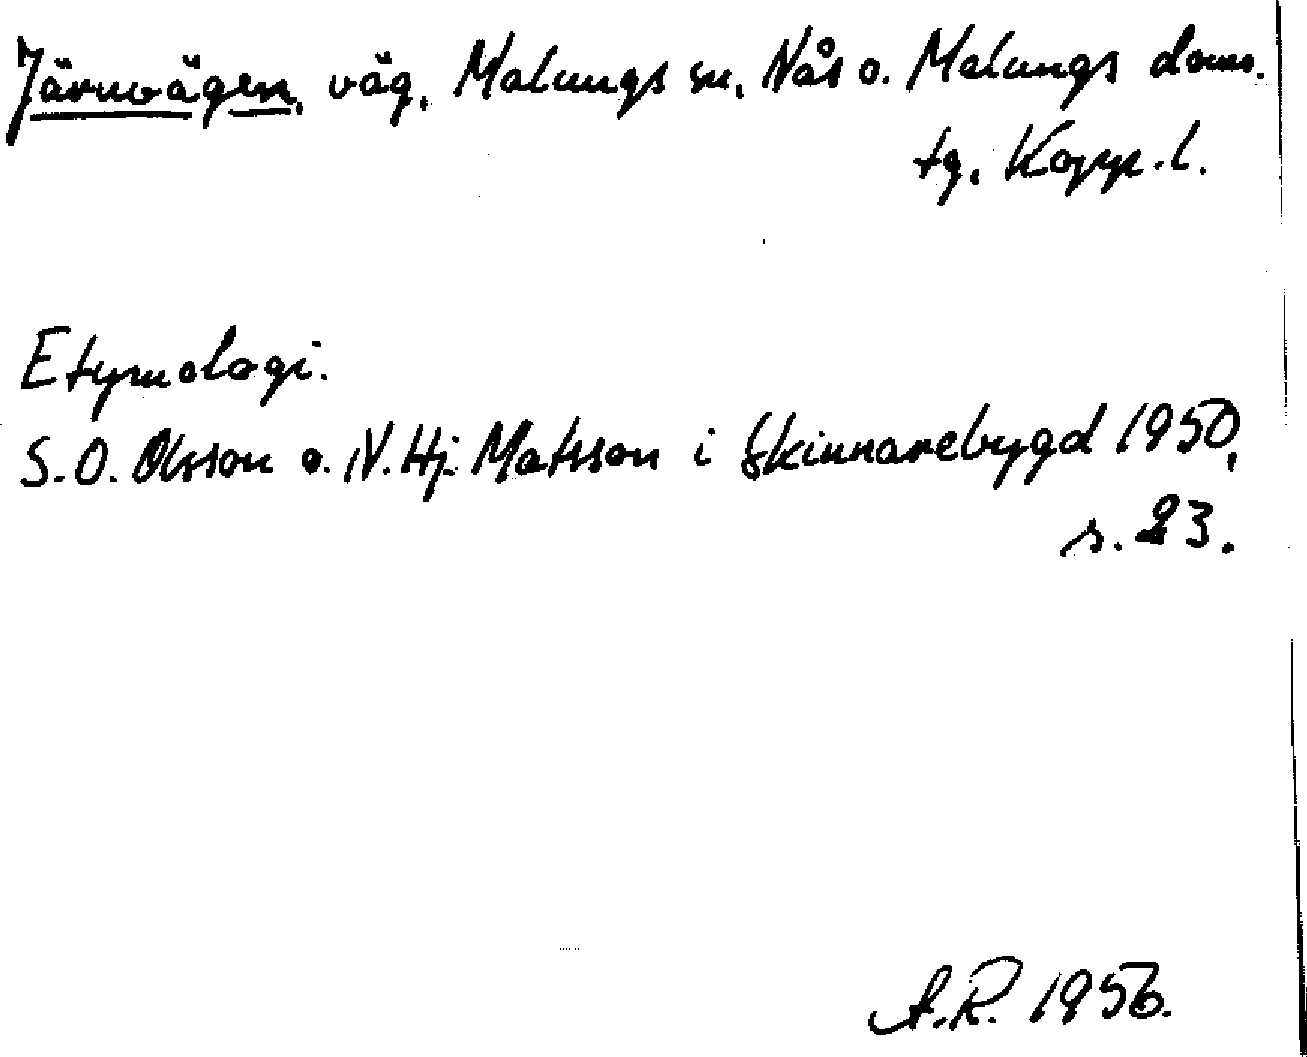 Järnvägen, väg, Malungs sn, Nås o. Malungs doms.
tg, Kopp. l.
Etymologi.
S.O. Olsson o. N. Hj. Matsson i Skinnarebygd 1950,
s. 23.
A.R. 1956.